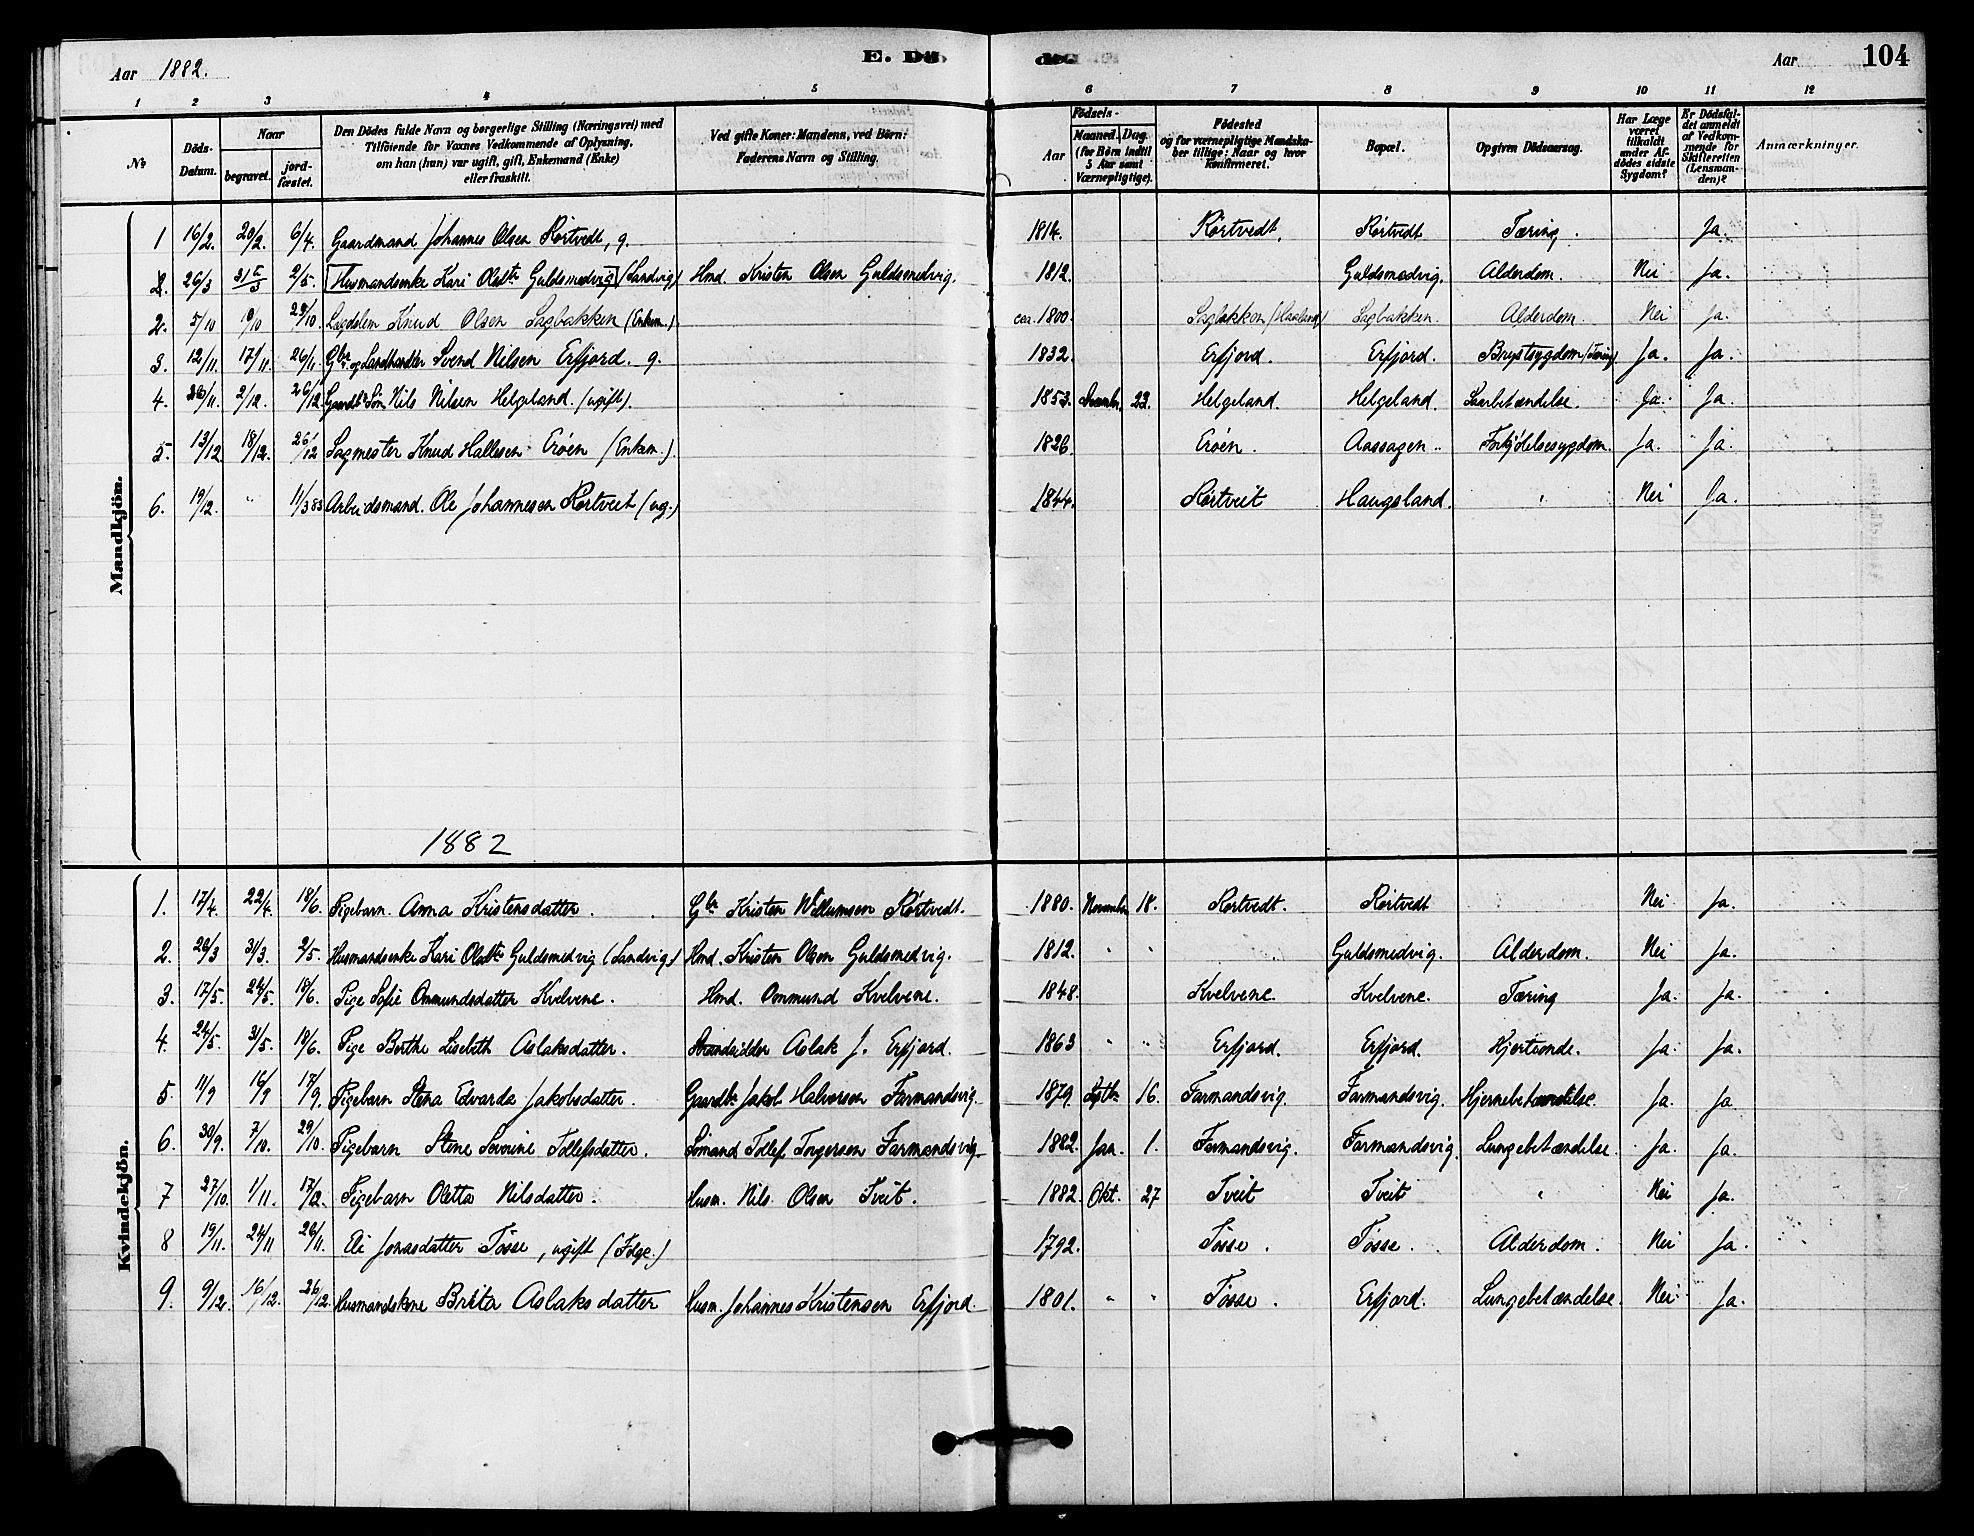 Aar 1882. E. Dö de Aar 104
1 2 3 4 5 6 7 8 9 10 11 12
№ Döds-Datum. Naar begravet. jord-fæstet. Den Dödes fulde Navn og borgerlige Stilling (Næringsvei) med Tilföiende for Voxnes Vedkommende af Oplysning, om han (hun) var ugift, gift, Enkemand (Enke) eller fraskilt. Ved gifte Koner: Mandens, ved Börn: Faderens Navn og Stilling. Födsels- Aar Maaned. Dag. (for Börn indtil 5 Aar samt Værnepligtige). Födested og for værnepligtige Mandskaber tillige: Naar og hvor konfirmeret. Bopæl. Opgiven Dödsaarsag. Har Læge været tilkaldt under Afdödes sidste Sygdom? Er Dödsfaldet anmeldt af Vedkommende for Skifteretten (Lensmanden)? Anmærkninger.
Mandkjön.
1 16/2. 20/2. 6/4. Gaardmand Johannes Olsen Rørtvedt, g. 1814. Rørtvedt. Rørtvedt Tæring. Ja.
2. 26/3 31/3 2/5. Husmandsenke Kari Olsdtr Guldsmedvig (Sandvig) Hmd. Kristen Olsen Guldsmedvig. 1812. Guldsmedvig. Alderdom. Nei Ja.
2. 5/10 /10 29/10. Lægdslem Knud Olsen Sagbakken (Enkem.). cca. 1800. Sagbakken (Haaland) Sagbakken. Alderdom. Nei Ja.
3. 12/11. 17/11. 26/11 Gbr. og Landhandler Svend Nilsen Erfjord. g. 1832. Erfjord. Erfjord. Brystsygdom (Tæring) Ja. Ja.
4. 26/11. 2/12. 26/12 Gaardbrs Søn Nils Nilsen Helgeland. (ugift). 1853. 23. Helgeland. Helgeland. Ja. Ja.
5. 13/12 18/12. 26/12 Sagmester Knud Hallesen Erøen (Enkem.). 1826. Erøen. Aassagen. Forkjølelsesygdom. Ja. Ja.
6. 19/12. " 11/3 83 Arbeidsmand. Ole Johannesen Rørtveit (ug.) 1844. Rørtveit Haugsland. " Nei Ja.
1882
Kvindekjön.
1. 17/4. 22/4. 18/6. Pigebarn. Anna Kristensdatter. Gbr Kristen Willumsen Rørtvedt. 1880. Novembr 18. Rørtvedt. Rørtvedt Nei Ja.
2. 26/3 31/3. 2/5. Husmandsenke Kari Olsdtr Guldsmedvig (Sandvig) Hmd. Kristen Olsen Guldsmedvig. 1812. " " Guldsmedvig. Alderdom. Nei Ja.
3. 17/5. 24/5. 18/6. Pige Sofie Ommundsdatter Kvelvene. Hmd. Ommund Kvelvene. 1848. Kvelvene. Kvelvene. Tæring Ja. Ja.
4. 24/5. 31/5. 18/6. Pige Berthe Lisebeth Aslaksdatter. Strandsidder Aslak J. Erfjord. 1863 " " Erfjord. Erfjord. Hjertonde. Ja. Ja.
5. 11/9 16/9 17/9. Pigebarn Stena Edvarda Jakobsdatter. Gaardbr Jakob Halvorsen Farmandsvig. 1879. Sptbr. 16. Farmandsvig. Farmandsvig. Hjernebetændelse. Ja. Ja
6. 30/9. 7/10. 29/10. Pigebarn Stene Severine Tollefsdatter. Sømand Tollef Torgersen Farmandsvig. 1882. Jan. 1. Farmandsvig. Farmandsvig. Lungebetændelse. Ja. Ja.
7 27/10. 1/11. 17/12. Pigebarn Oletta Nilsdatter. Husm. Nils Olsen Tveit. 1882. Okt. 27 Tveit Tveit " Nei Ja.
8 19/11. 24/11 26/11. Eli Jonasdatter Tøsse, ugift (Folge.) 1792. Tøsse. Tøsse. Alderdom. Nei Ja.
9. 9/12. 16/12. 26/12. Husmandskone Brita Aslaksdatter Husm. Johannes Kristensen Erfjord. 1801. " " Tøsse. Erfjord. Lungebetændelse. Nei Ja.